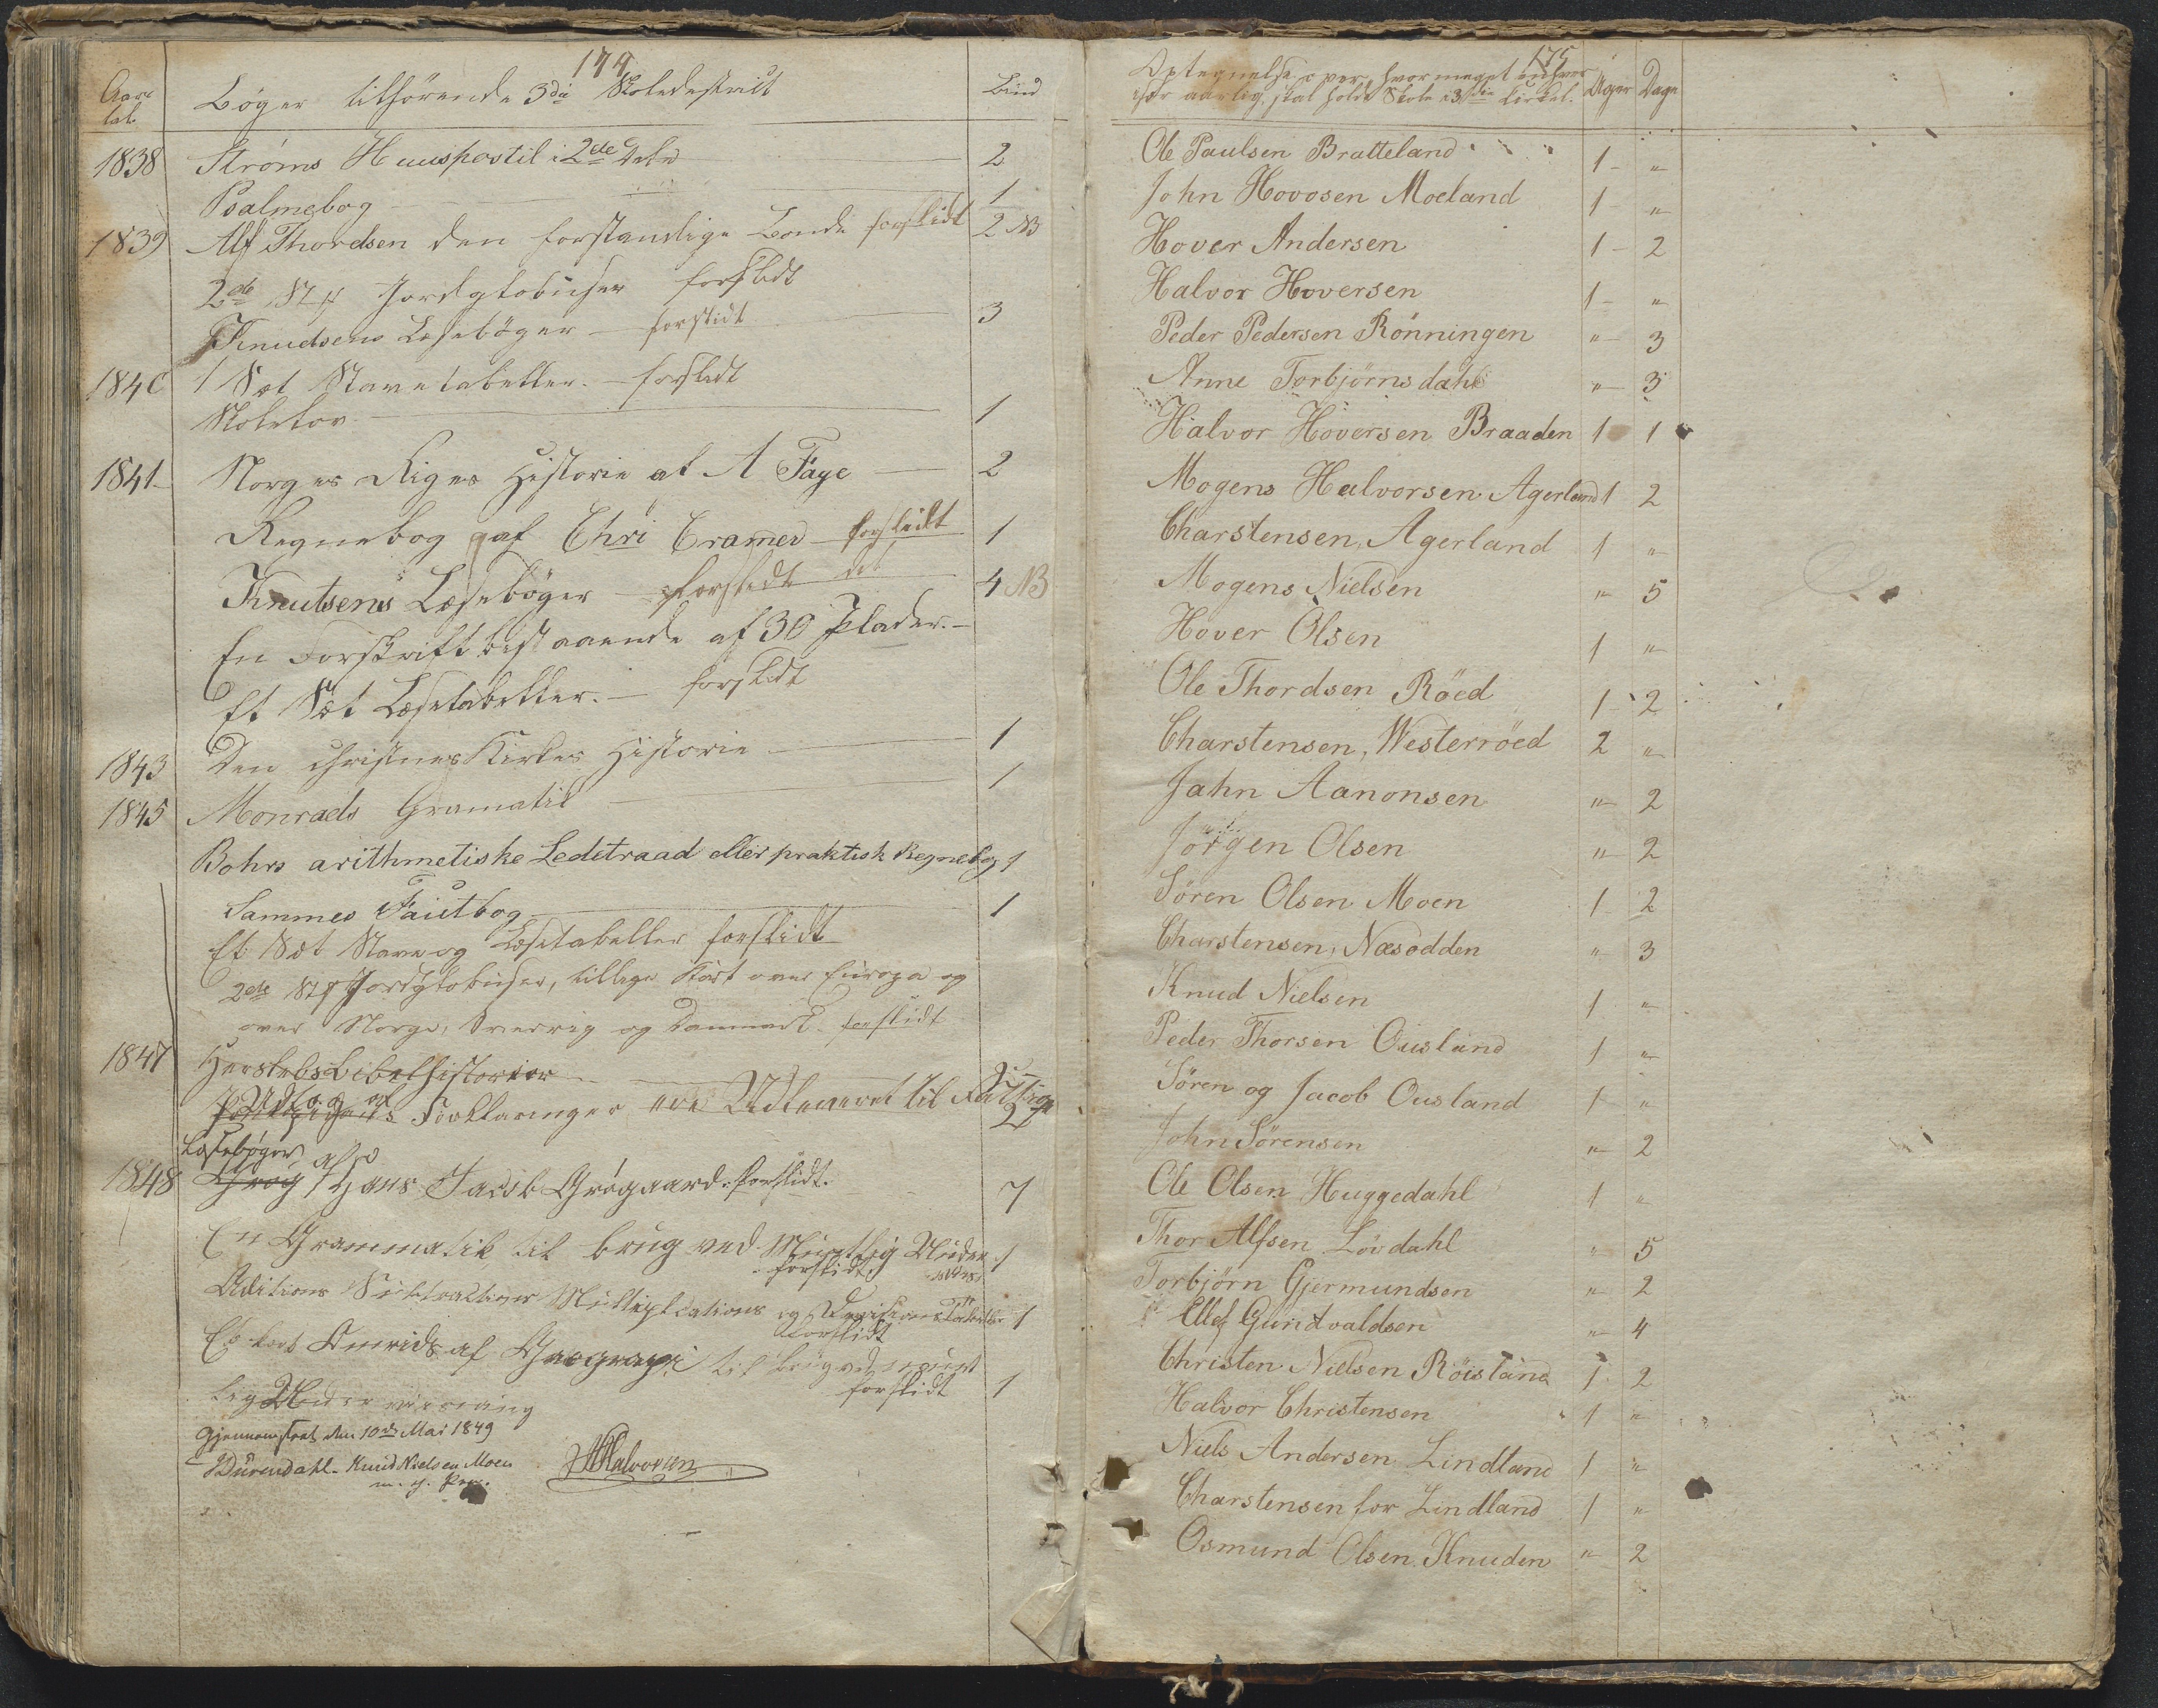 174
Aars Bøger tilhørende 3die Skoledistrict Bind
tal.
1838 Strøms Huuspostil i 2de Dele 2
Psalmebog 1
1839 Alf Thordsen den forstandige Bonde forslidt 2 NB
2de St Jordglobuser forslidt
Knudsens Læsebøger forslidt 3
1840 1 Sæt Stavetabeller. forslidt
Skolelov 1
1841 Norges Riges Historie af A Faye 2
Regnebog af Chri Cramer forslidt 1
Knutsens Læsebøger forslidt 4 NB
En Forskrift bestaaende af 30 Plader.
Et Sæt Læsetabeller. forslidt
1843 Den christnes Kirkes Historie 1
1845 Monrads Gramatik 1
Bohrs arithmetiske Ledetraad eller praktisk Regnebog 1
Sammes Facitbog 1
Et Sæt Stave og Læsetabeller forslidt
2de St Jordglobuser, tillige Kart over Europa og
over Norge, Sverrig og Danmark. forslidt
1847 Herslebs Bibelhistorier
Udtog af Forklaringer ere Udleveret til 2
Læsebøger af
1848 Hans Jacob Grøgaard. forslidt. 7
En Grammatik til brug ved Mundtlig Under 1
forslidt
Aditions Subtractions Multiplications og Devisions Tabeller 1
forslidt
Et kort Omrids af Geograpi til brug ved mundt
lig Underviisning forslidt 1
Gjennemseet den 10de Mai 1849
Dürendahl. Knud Nielsen Moen Halvorsen
m. f. Pen.
175
Optegnelse over, hvor meget enhver Uger Dage
især aarlig, skal holde Skole i 3die Cirkel.
Ole Paulsen Bratteland 1 - "
John Hovosen Moeland 1 - "
Hover Andersen 1 - 2
Halvor Hoversen 1 - "
Peder Pedersen Rönningen " - 3
Anne Torbjörnsdahl " - 3
Halvor Hoversen Braaden 1 1
Mogens Halvorsen Agerland 1 2
Charstensen, Agerland 1 "
Mogens Nielsen " 5
Hover Olsen 1 "
Ole Thordsen Röed 1 - 2
Charstensen, Westerröed 2 "
Jahn Aanonsen " 2
Jörgen Olsen " 2
Sören Olsen Moen 1 2
Charstensen, Næsodden " 3
Knud Nielsen 1 "
Peder Thorsen Ousland 1 "
Sören og Jacob Ousland 1 "
John Sörensen " 2
Ole Olsen Huggedahl 1 "
Thor Alfsen Lövdahl " 5
Torbjörn Gjermundsen " 2
Ellef Gundvaldsen " 4
Christen Nielsen Röisland 1 2
Halvor Christensen 1 "
Niels Andersen Lindland 1 "
Charstensen for Lindland 1 "
Osmund Olsen Knuden " 2